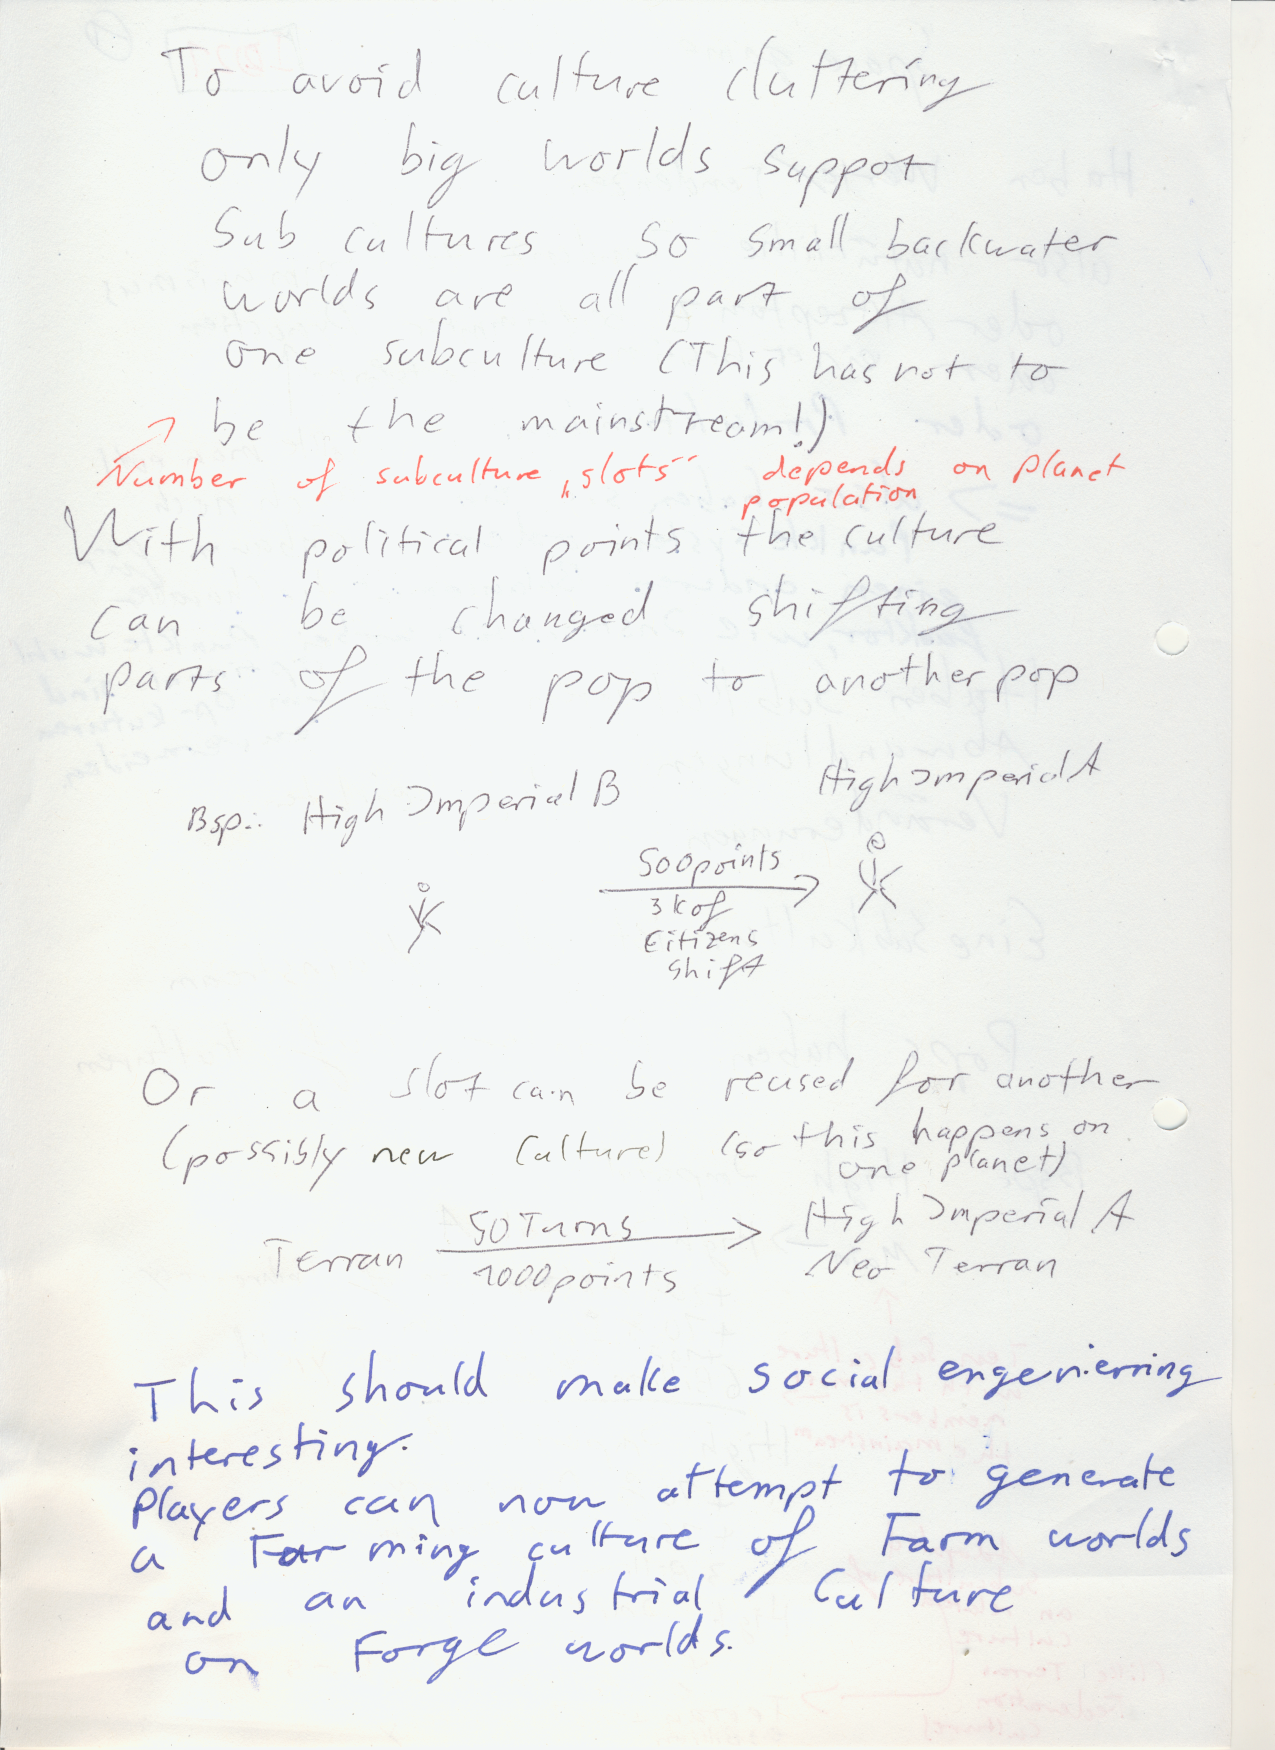 To avoid culture cluttering
only big worlds suppot
Sub cultures so small backwater
worlds are all part of
one subculture (This has not to
be the mainstream!)
Number of subculture „slots“ depends on planet
population
With political points the culture
can be changed shifting
parts of the pop to another pop
High Imperial A
Bsp.: High Imperial B
500points
3k of
Citizens
shift
Or a slot can be reused for another
(possibly new Culture) (so this happens on
one planet)
50 Turns High Imperial A
Terran 1000points Neo Terran
This should make social engenierring
interesting.
Players can now attempt to generate
a Farming culture of Farm worlds
and an industrial Culture
on Forge worlds.